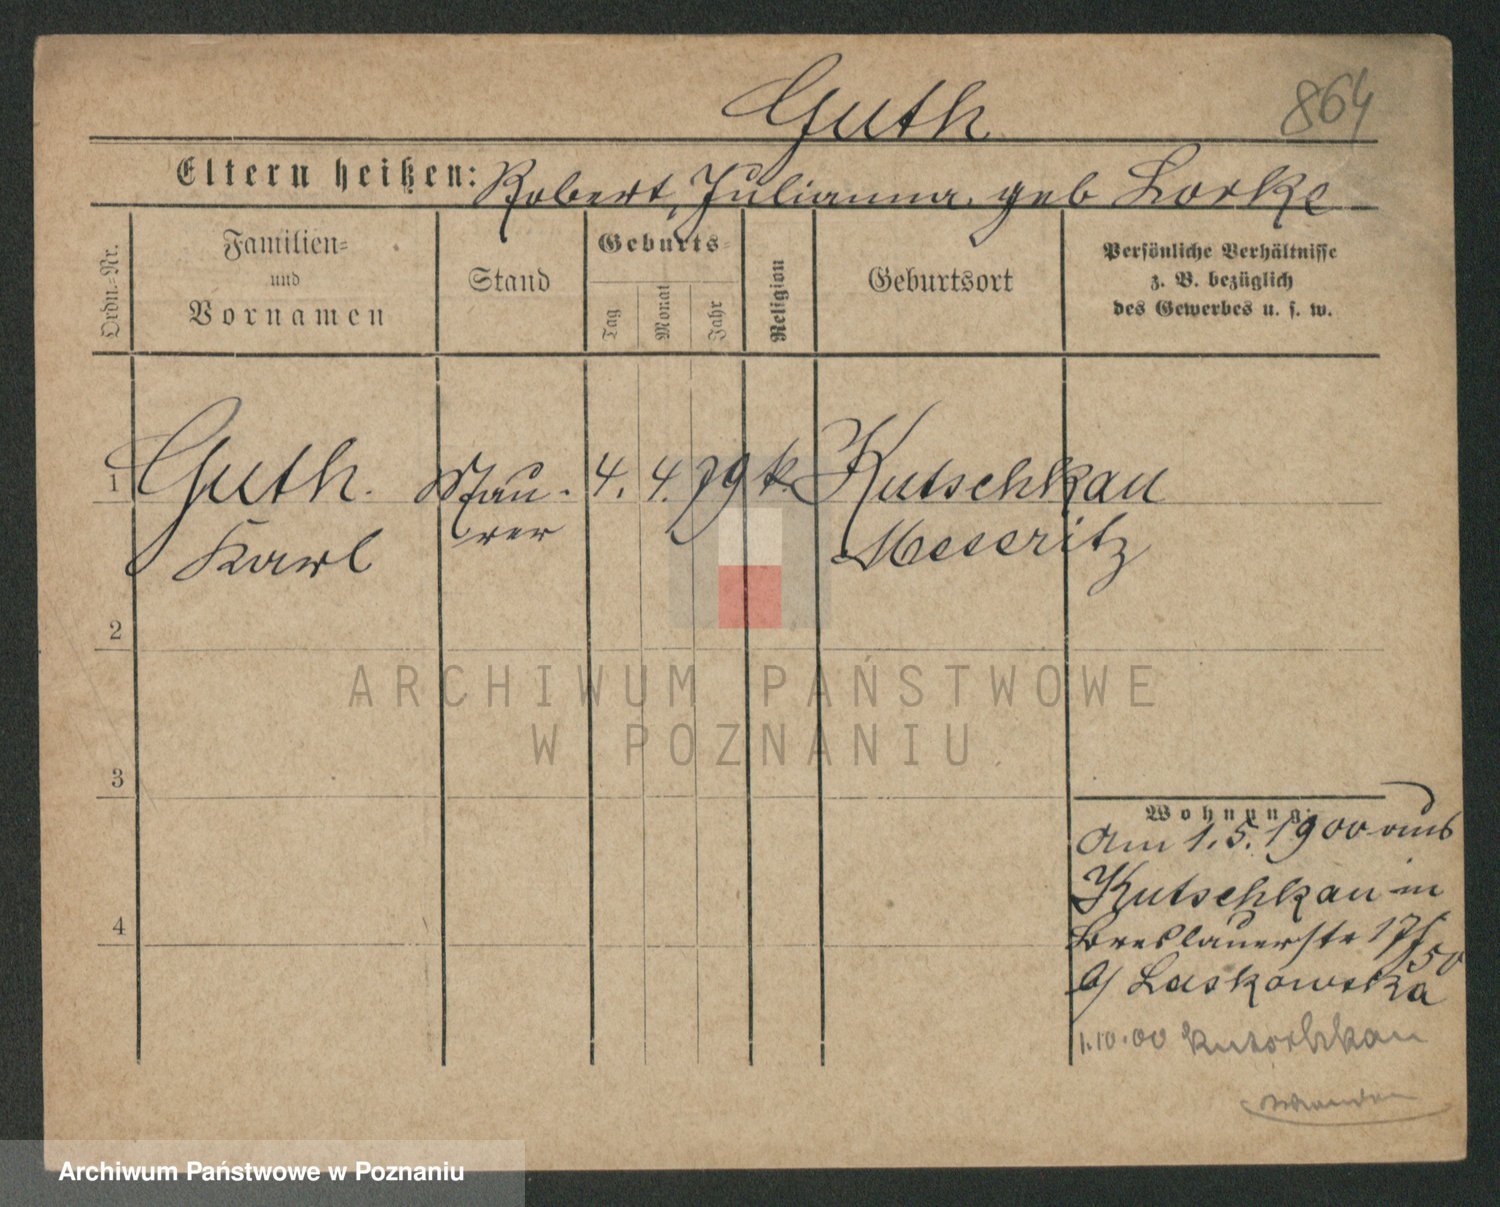 Guth
864
Eltern heißen: Robert, Julianna geb Lorke
Ordn.-Nr.
Familien-
und
Vornamen
Stand
Geburts-
Tag
Monat
Jahr
Religion
Geburtsort
Persönliche Verhältnisse
z. B. bezüglich
des Gewerbes u. s. w.
1 Guth. Mau- 4. 4. 79 k. Kutschkau
Karl rer Meseritz
2
ARCHIWUM PAŃSTWOWE
W POZNANIU
3
Wohnung:
Am 1.5.1900 aus
Kutschkau in
4
Breslauerstr 17/
50
b/ Laskowska
1.10.00 Kutschkau
Archiwum Państwowe w Poznaniu